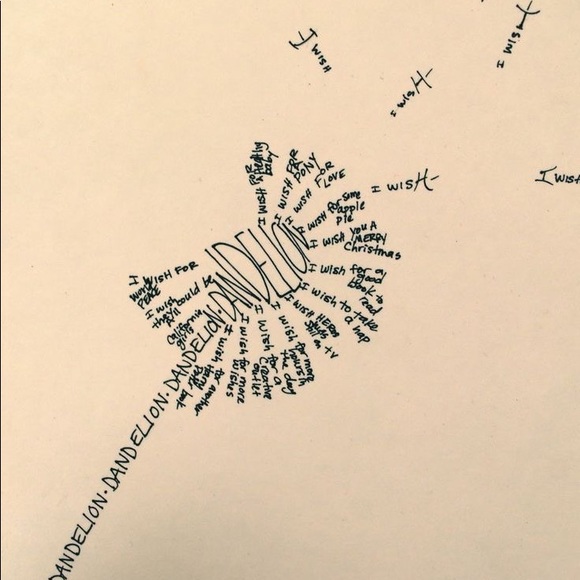 I WISH
I WISH
I WISH
I WISH
I WISH
I WISH FOR
WORLD
PEACE
I wish
they all could be
California
girls
I WISH FOR
A HEALTHY
baby
I WISH FOR
A PONY
I WISH FOR
LOVE
I WISH for some
apple
pie
I WISH YOU A
MERRY
Christmas
I wish for a
good
book to
read
I wish to take
a nap
I WISH HEROES
was
still on TV
I wish for more
hours in
the day
I Wish for a
Creative
outlet
I wish for more
wishes
I wish for another
DANDELION
DANDELION·DANDELION·DANDELION·DANDELION